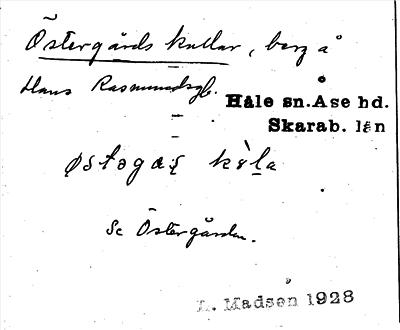 Östergårds kullar, berg å
Hans Rasmundsg.
Håle sn. Åse hd.
Skarab. län
østəgaʂ kɵ̀l̠a
Se Östergården.
L. Madsen 1928